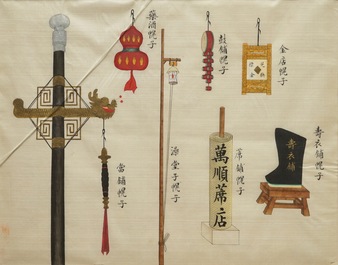 藥酒幌子
鼓鋪幌子
金店幌子
當鋪幌子
堂子幌子
萬順蓆店
蓆鋪幌子
壽衣鋪
壽衣鋪幌子